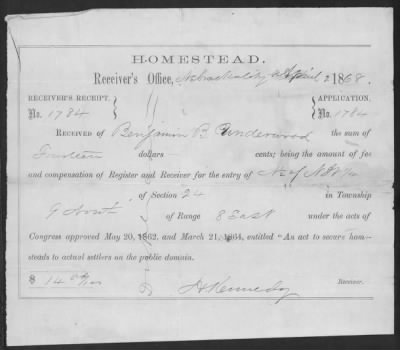 HOMESTEAD.
Receiver's Office, Nebraska City April 2 1868.
RECEIVER'S RECEIPT, APPLICATION,
No. 1784 No. 1784
RECEIVED OF Benjamin B Underwood the sum of
Fourteen dollars cents; being the amount of fee
and compensation of Register and Receiver for the entry of
of Section 24 in Township
9 North of Range 8 East under the acts of
Congress approved May 20, 1862, and March 21, 1864, entitled "An act to secure hom-
steads to actual settlers on the public domain.
$ 14 Receiver.
Kennedy